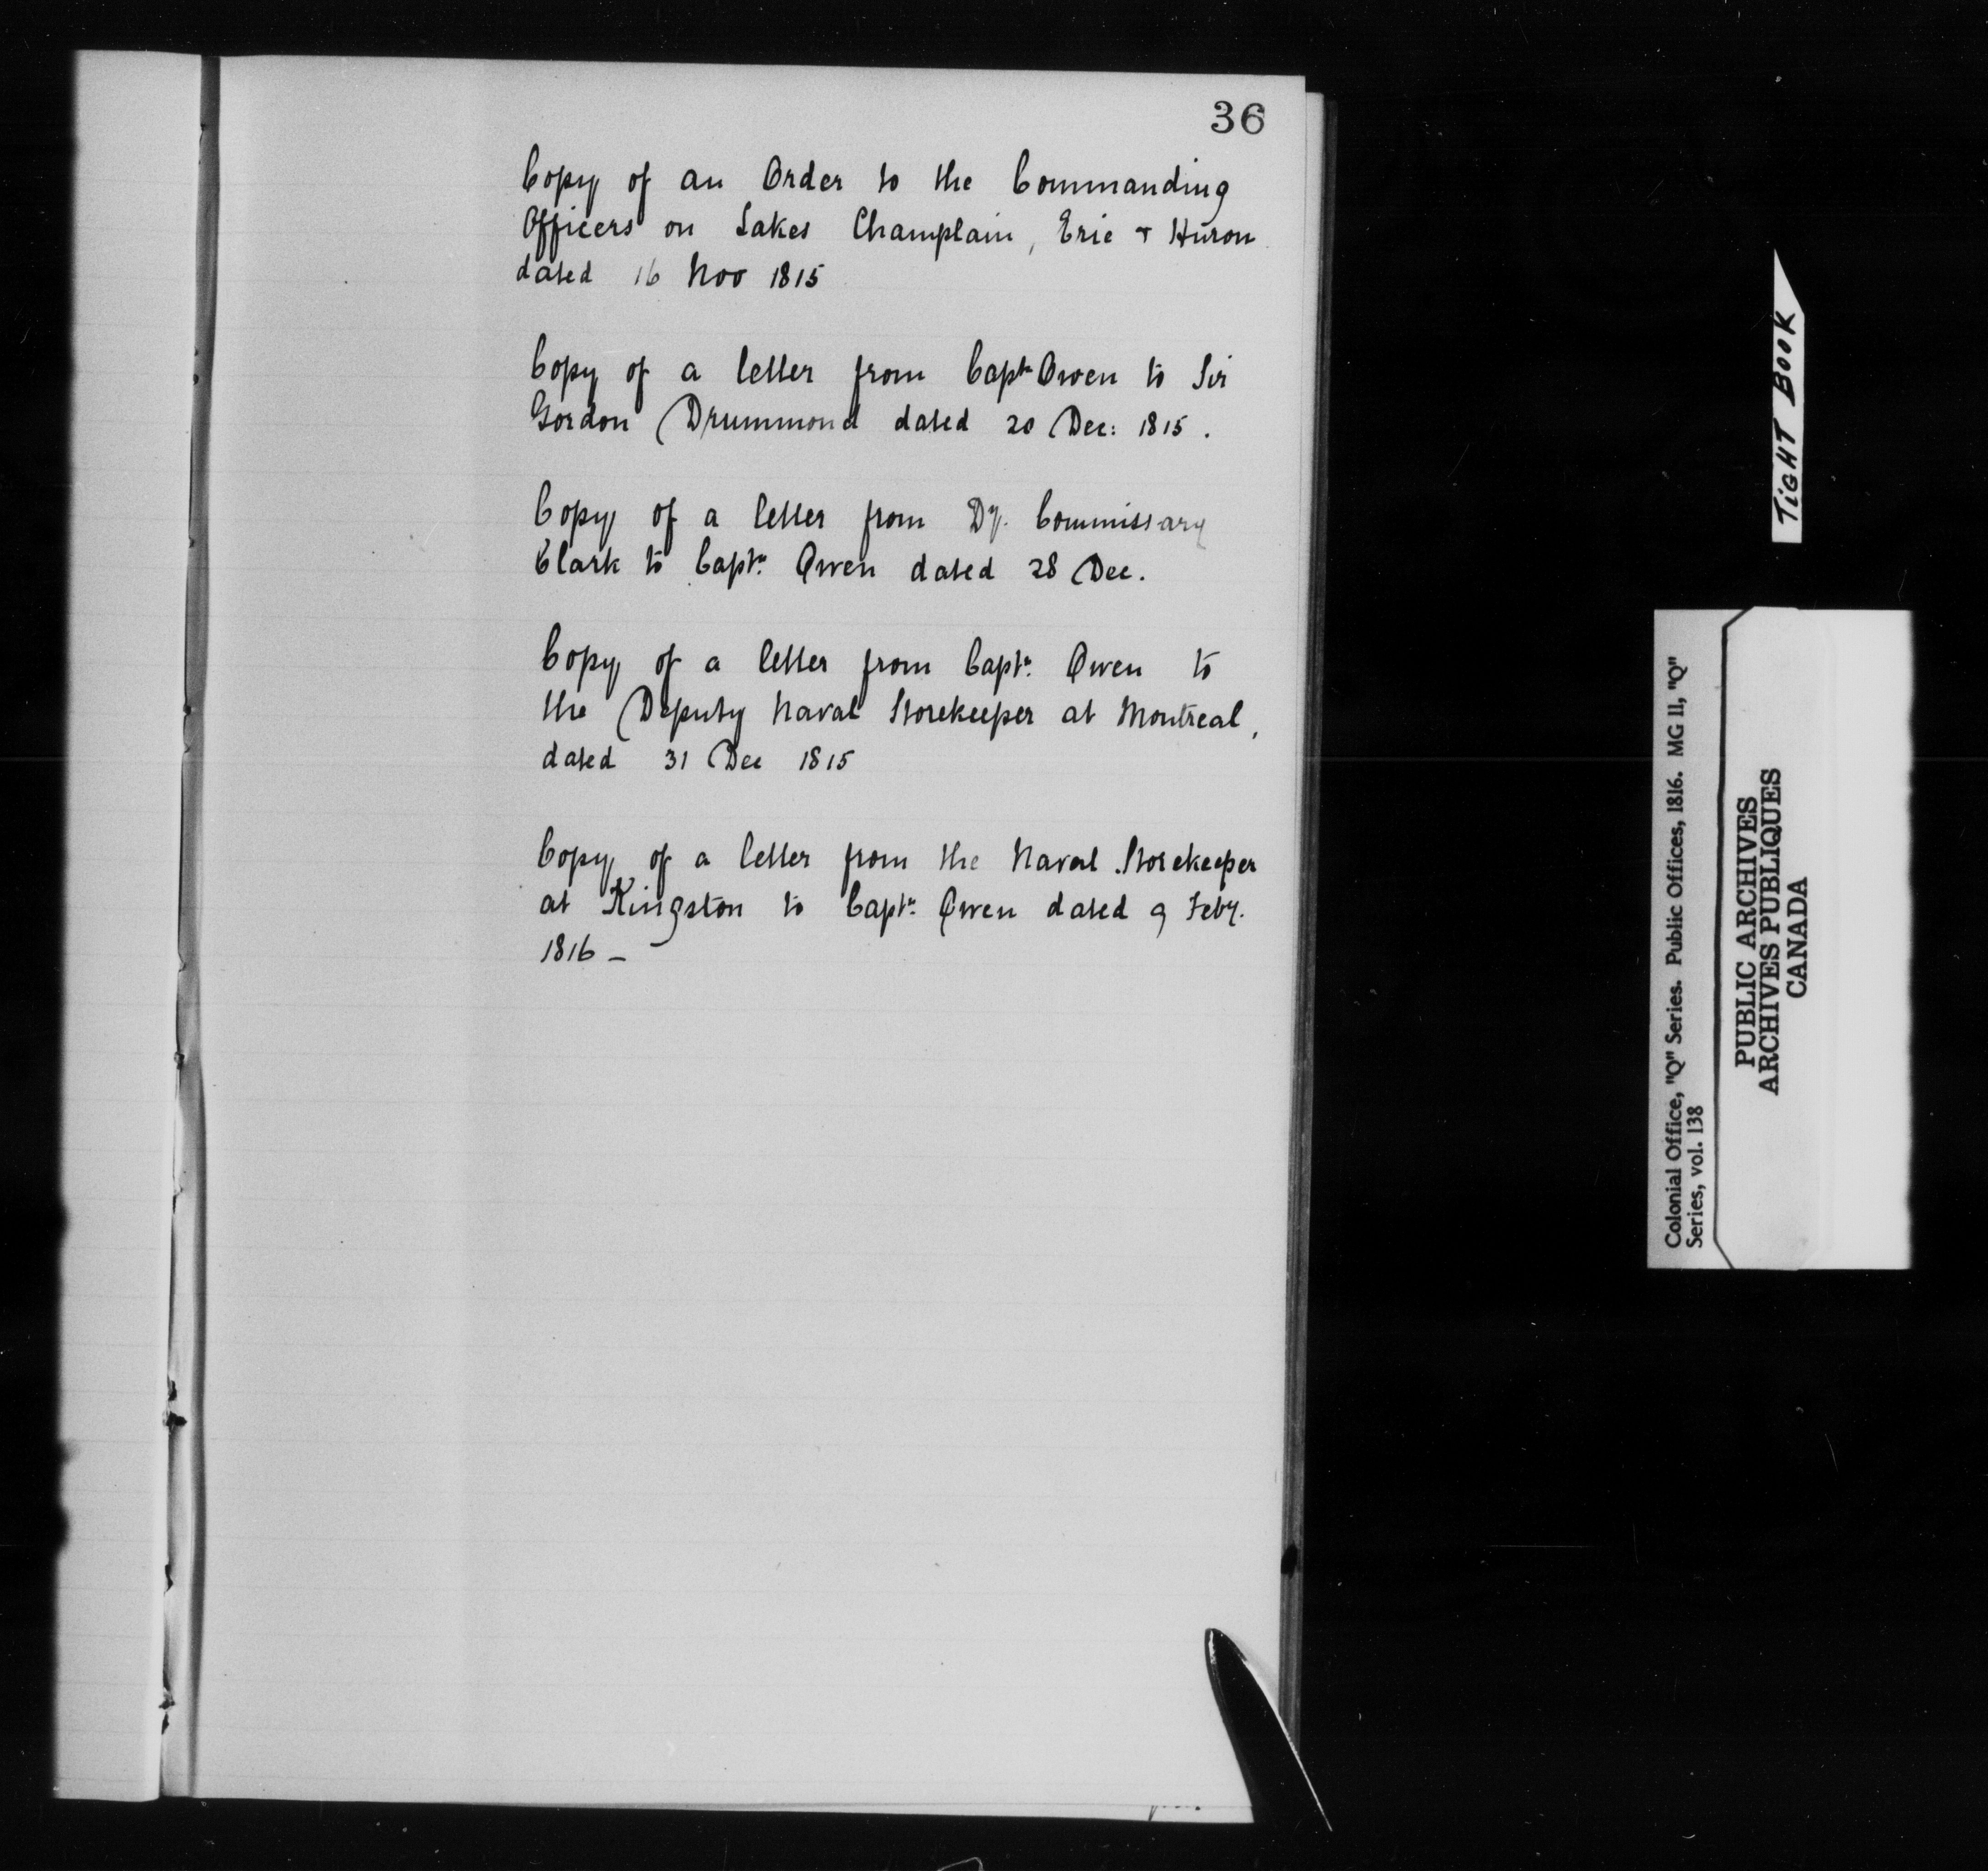 36
Copy of an Order to the Commanding
Officers on Lakes Champlain, Erie + Huron
dated 16 Nov 1815
Copy of a letter from Captn Owen to Sir
Gordon Drummond dated 20 Dec: 1815.
Copy of a letter from Dy. Commissary
Clark to Captn. Owen dated 28 Dec.
Copy of a letter from Captn. Owen to
the Deputy Naval Storekeeper at Montreal,
dated 31 Dec 1815
Copy of a letter from the Naval Storekeeper
at Kingston to Captn. Owen dated 9 Feby.
1816 –
TIGHT BOOK
Colonial Office, "Q" Series. Public Offices, 1816. MG 11, "Q"
Series, vol. 138
PUBLIC ARCHIVES
ARCHIVES PUBLIQUES
CANADA